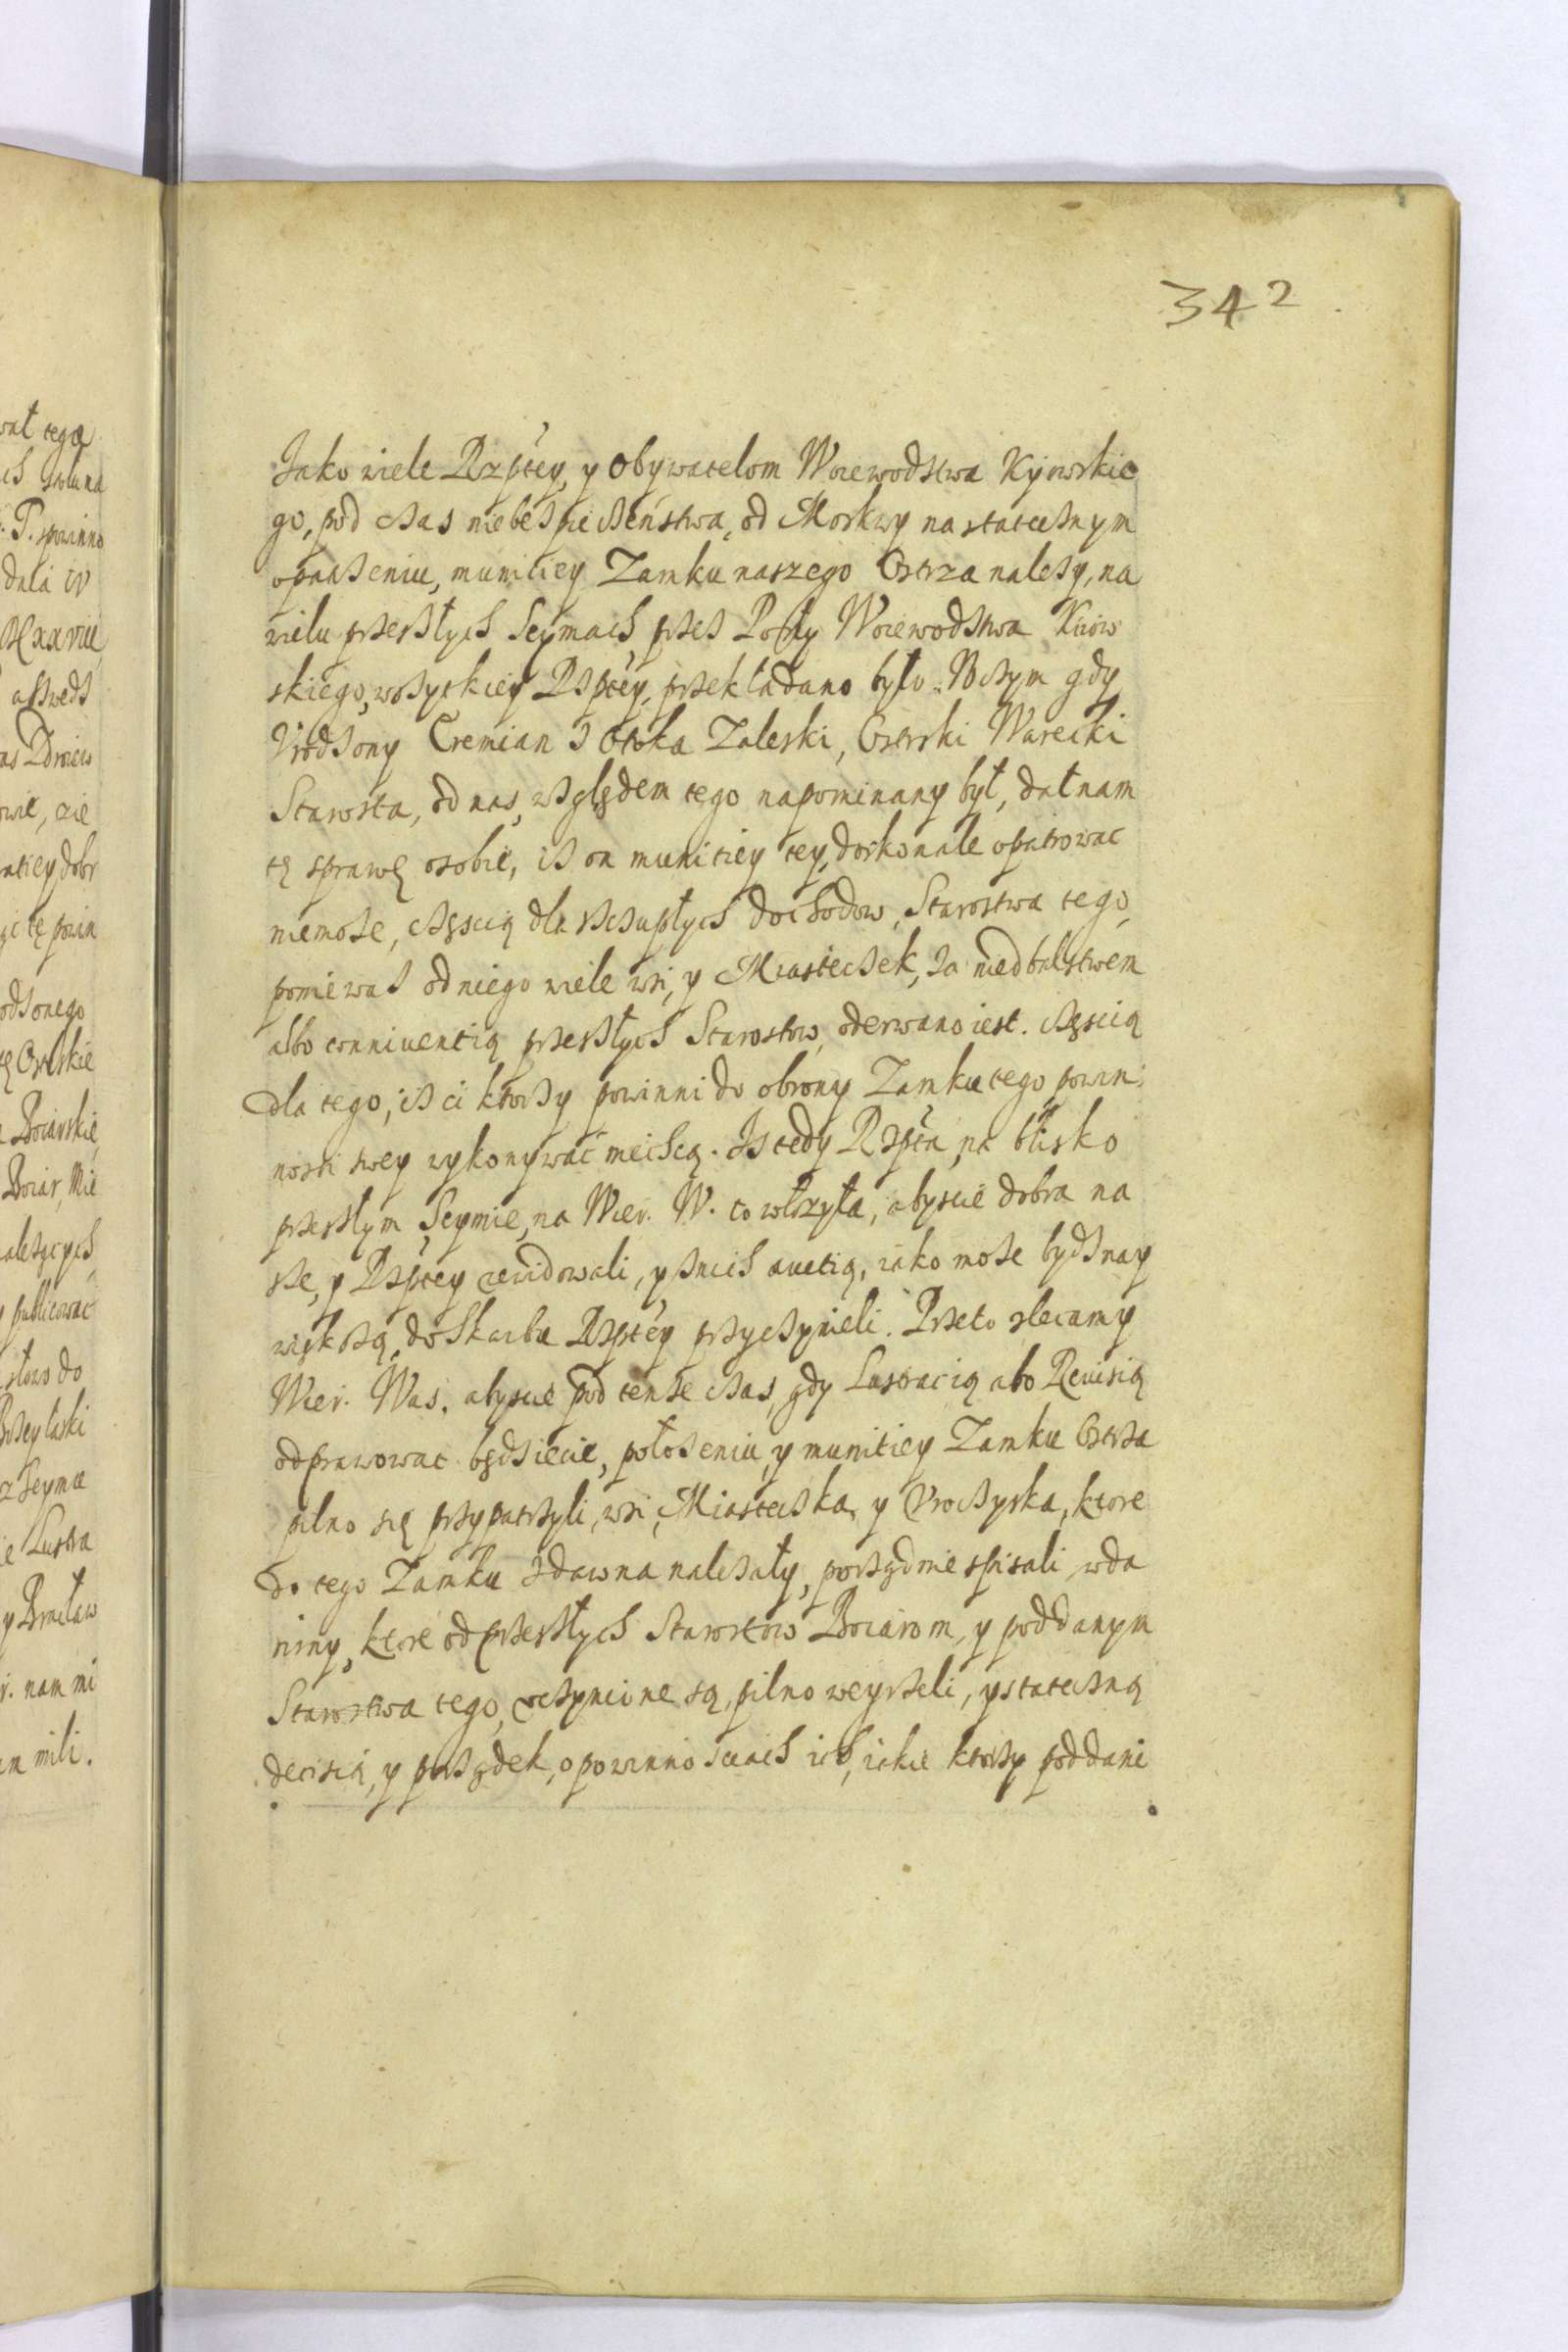 342
Jako wiele Rzptey, y Obywatelom Woiewodztwa Kyiowskie
go, pod czas niebezpieczeństwa, od Moskwy na statecznym
opatrzeniu, municiey Zamku naszego Ostrza należy, na
wielu przeszłych Seymach, przez Posły Woiewodztwa Kiiow
skiego, wszyskiey Rzptey, przekładano było. W czym gdy
Vrodzony Eremian z Otoka Zaleski, Osterski Warecki
Starosta, od nas, względem tego napominany był, dał nam
tę sprawę o sobie, iż on municiey tey, doskonale opatrowac
niemoże, częscią dla szczupłych dochodow, Starostwa tego,
poniewaz od niego wiele wsi, y Miasteczek, za niedbalstwem
albo conniuentią przeszłych Starostow, oderwano iest. częscią
dla tego, iż ci ktorzy powinni do obrony Zamku tego powin:
nosci swey wykonywać niechcą. Iz tedy Rzpta, na blisko
przeszłym Seymie, na Wier. W. to włozyła, abyscie dobra na
sze, y Rzptey rewidowali, y z nich auctią, iako może bydz nay
większą, do Skarbu Rzptey przyczynieli. Przeto zlecamy
Wier. Was. abyscie pod tenże czas, gdy Lustracią abo Reuisią
odprawowac będziecie, położeniu, y municiey Zamku Ostrza
pilno się przypatrzyli, wsi, Miasteczka, y Vroczyska, ktore
do tego Zamku zdawna należały, porządnie spisali, w da
niny, ktore od przeszłych Starostow Boiarom, y poddanym
Starostwa tego, vczynione są, pilno weyrzeli, y stateczną
decisią, y porządek, o powinnosciach ich, iakie ktorzy poddani